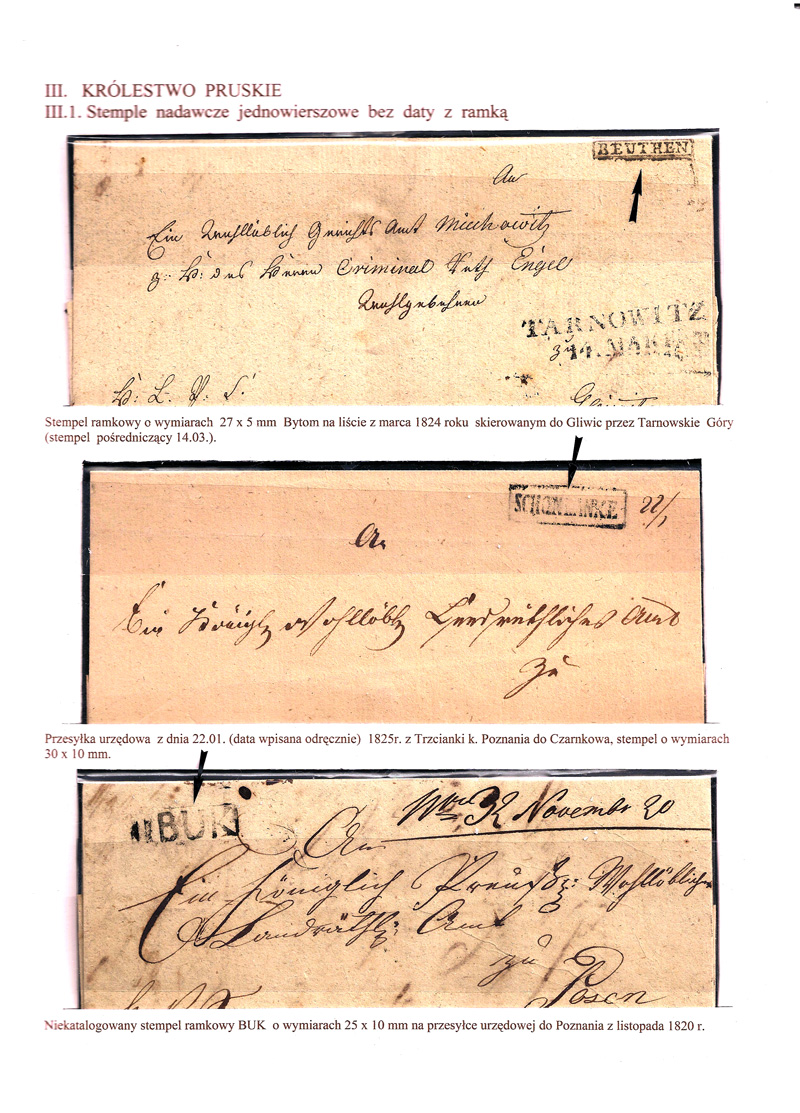 III. KRÓLESTWO PRUSKIE
III.1. Stemple nadawcze jednowierszowe bez daty z ramką
BEUTHEN
An
Ein Wohllöblich Gerichts Amt Miechowitz
z: H: des Herrn Criminal Rath Engel
Wohlgebohren
TARNOWITZ
zu
14. MARTZ
Stempel ramkowy o wymiarach 27 x 5 mm Bytom na liście z marca 1824 roku skierowanym do Gliwic przez Tarnowskie Góry
(stempel pośredniczący 14.03.).
SCHONLANKE 22/1
An
Ein Königl Wohllöbl Landräthliches Amt
zu
Przesyłka urzędowa z dnia 22.01. (data wpisana odręcznie) 1825r. z Trzcianki k. Poznania do Czarnkowa, stempel o wymiarach
30 x 10 mm.
BUK
32 Novembr 20
An
Ein Königlich Preuß: Wohllöbliches
Landräthl: Amt
zu
Posen
Niekatalogowany stempel ramkowy BUK o wymiarach 25 x 10 mm na przesyłce urzędowej do Poznania z listopada 1820 r.